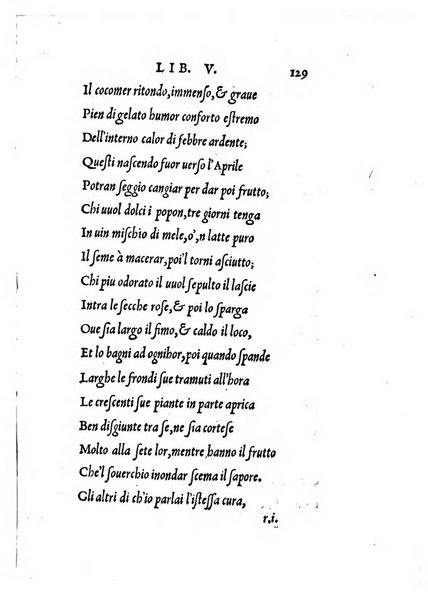 LIB. V. 129
Il cocomer ritondo, immenſo, & graue
Pien di gelato humor conforto eſtremo
Dell'interno calor di febbre ardente;
Queſti naſcendo fuor uerſo l'Aprile
Potran ſeggio cangiar per dar poi frutto;
Chi uuol dolci i popon, tre giorni tenga
In uin miſchio di mele, o',n latte puro
Il ſeme à macerar, poi'l torni aſciutto;
Chi piu odorato il uuol ſepulto il laſcie
Intra le ſecche roſe, & poi lo ſparga
Oue ſia largo il fimo, & caldo il loco,
Et lo bagni ad ognihor, poi quando ſpande
Larghe le frondi ſue tramuti all'hora
Le creſcenti ſue piante in parte aprica
Ben diſgiunte tra ſe, ne ſia corteſe
Molto alla ſete lor, mentre hanno il frutto
Che'l ſouerchio inondar ſcema il ſapore.
Gli altri di ch'io parlai l'iſteſſa cura,
r.i.